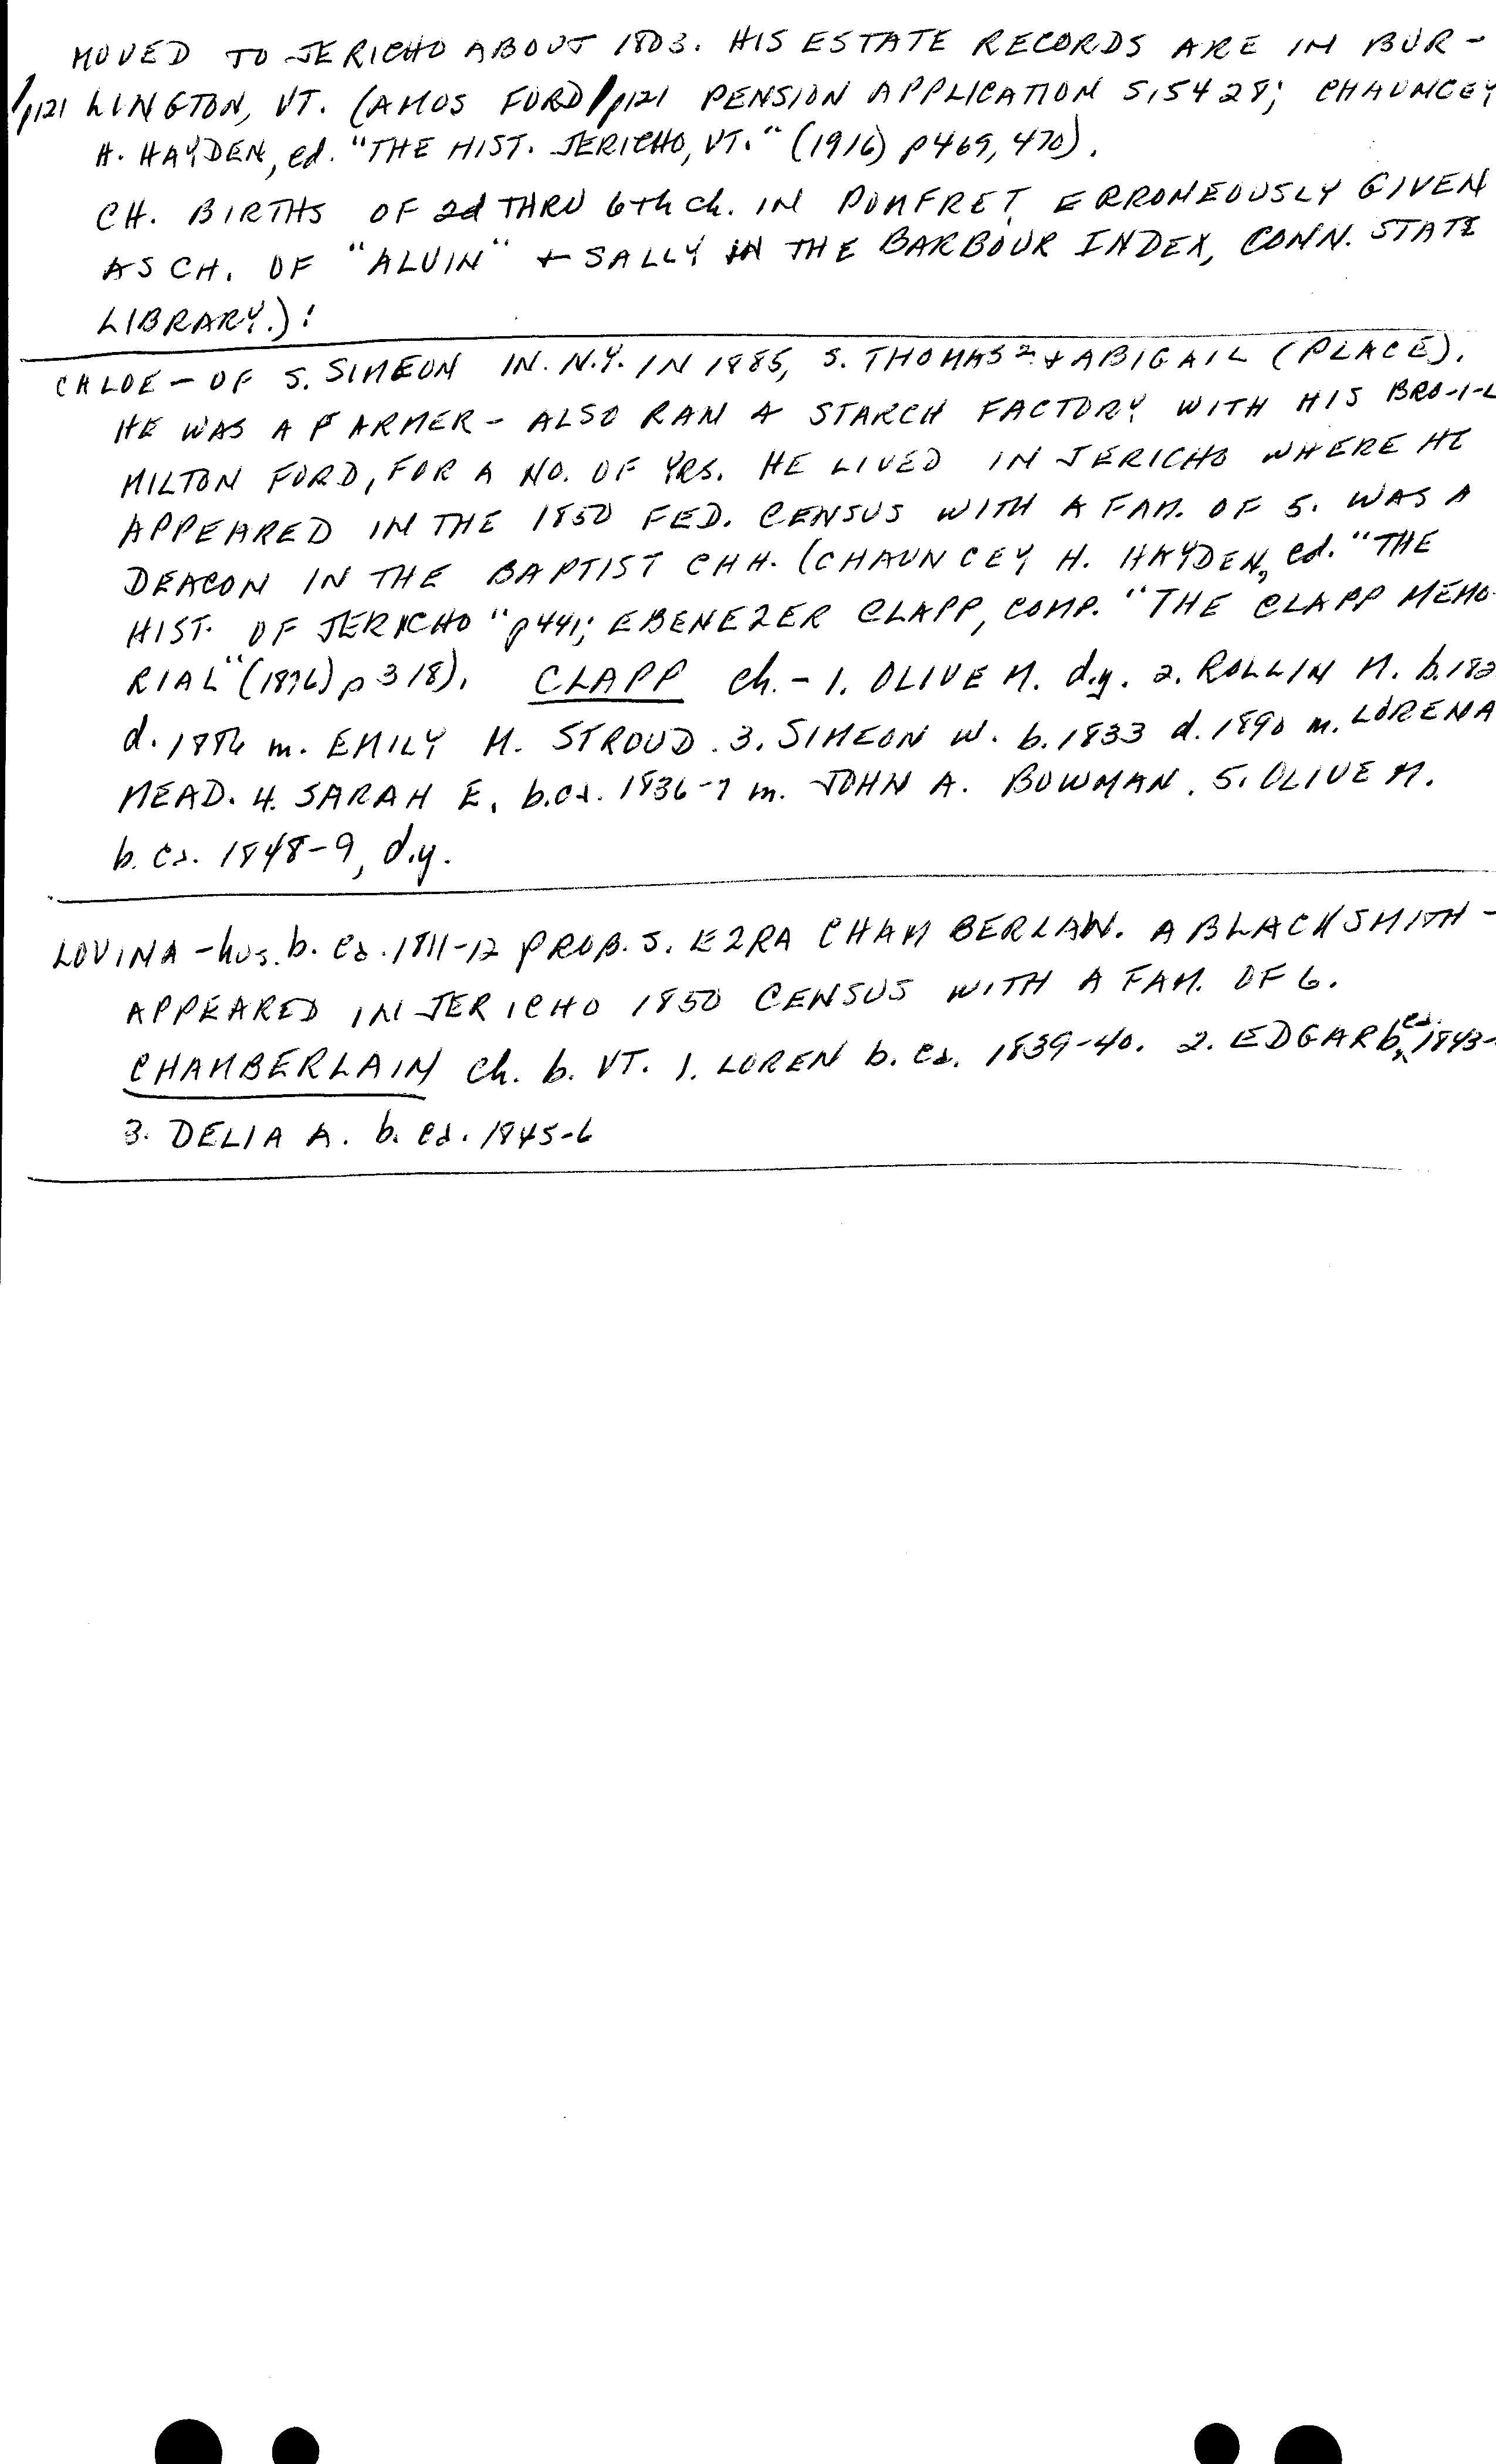 MOVED TO JERICHO ABOUT 1803. HIS ESTATE RECORDS ARE IN BUR-
/p121 LINGTON, VT. (AMOS FORD/p121 PENSION APPLICATION S15428; CHAUNCEY
H. HAYDEN, ed. "THE HIST. JERICHO, VT." (1916) p469, 470).
CH. BIRTHS OF 2d THRU 6th ch. IN POMFRET ERRONEOUSLY GIVEN
AS CH. OF "ALVIN" + SALLY IN THE BARBOUR INDEX, CONN. STATE
LIBRARY.):
CHLOE - OF S. SIMEON IN. N.Y. IN 1885, S. THOMAS 2 + ABIGAIL (PLACE).
HE WAS A FARMER - ALSO RAN A STARCH FACTORY WITH HIS BRO-I-L
MILTON FORD, FOR A NO. OF YRS. HE LIVED IN JERICHO WHERE HE
APPEARED IN THE 1850 FED. CENSUS WITH A FAM. OF 5. WAS A
DEACON IN THE BAPTIST CHH. (CHAUNCEY H. HAYDEN, ed. "THE
HIST. OF JERICHO" p441; EBENEZER CLAPP, COMP. "THE CLAPP MEMO-
RIAL" (1876) p 318). CLAPP ch. - 1. OLIVE M. d.y. 2. ROLLIN M. b. 182
d. 1886 m. EMILY M. STROUD. 3. SIMEON W. b. 1833 d. 1890 m. LORENA
MEAD. 4. SARAH E. b. ca. 1836-7 m. JOHN A. BOWMAN. 5. OLIVE M.
b. ca. 1848-9, d.y.
LOVINA - hus. b. ca. 1811-12 PROB. S. EZRA CHAMBERLAIN. A BLACKSMITH -
APPEARED IN JERICHO 1850 CENSUS WITH A FAM. OF 6.
CHAMBERLAIN ch. b. VT. 1. LOREN b. ca. 1839-40. 2. EDGAR b. ca. 1843-
3. DELIA A. b. ca. 1845-6